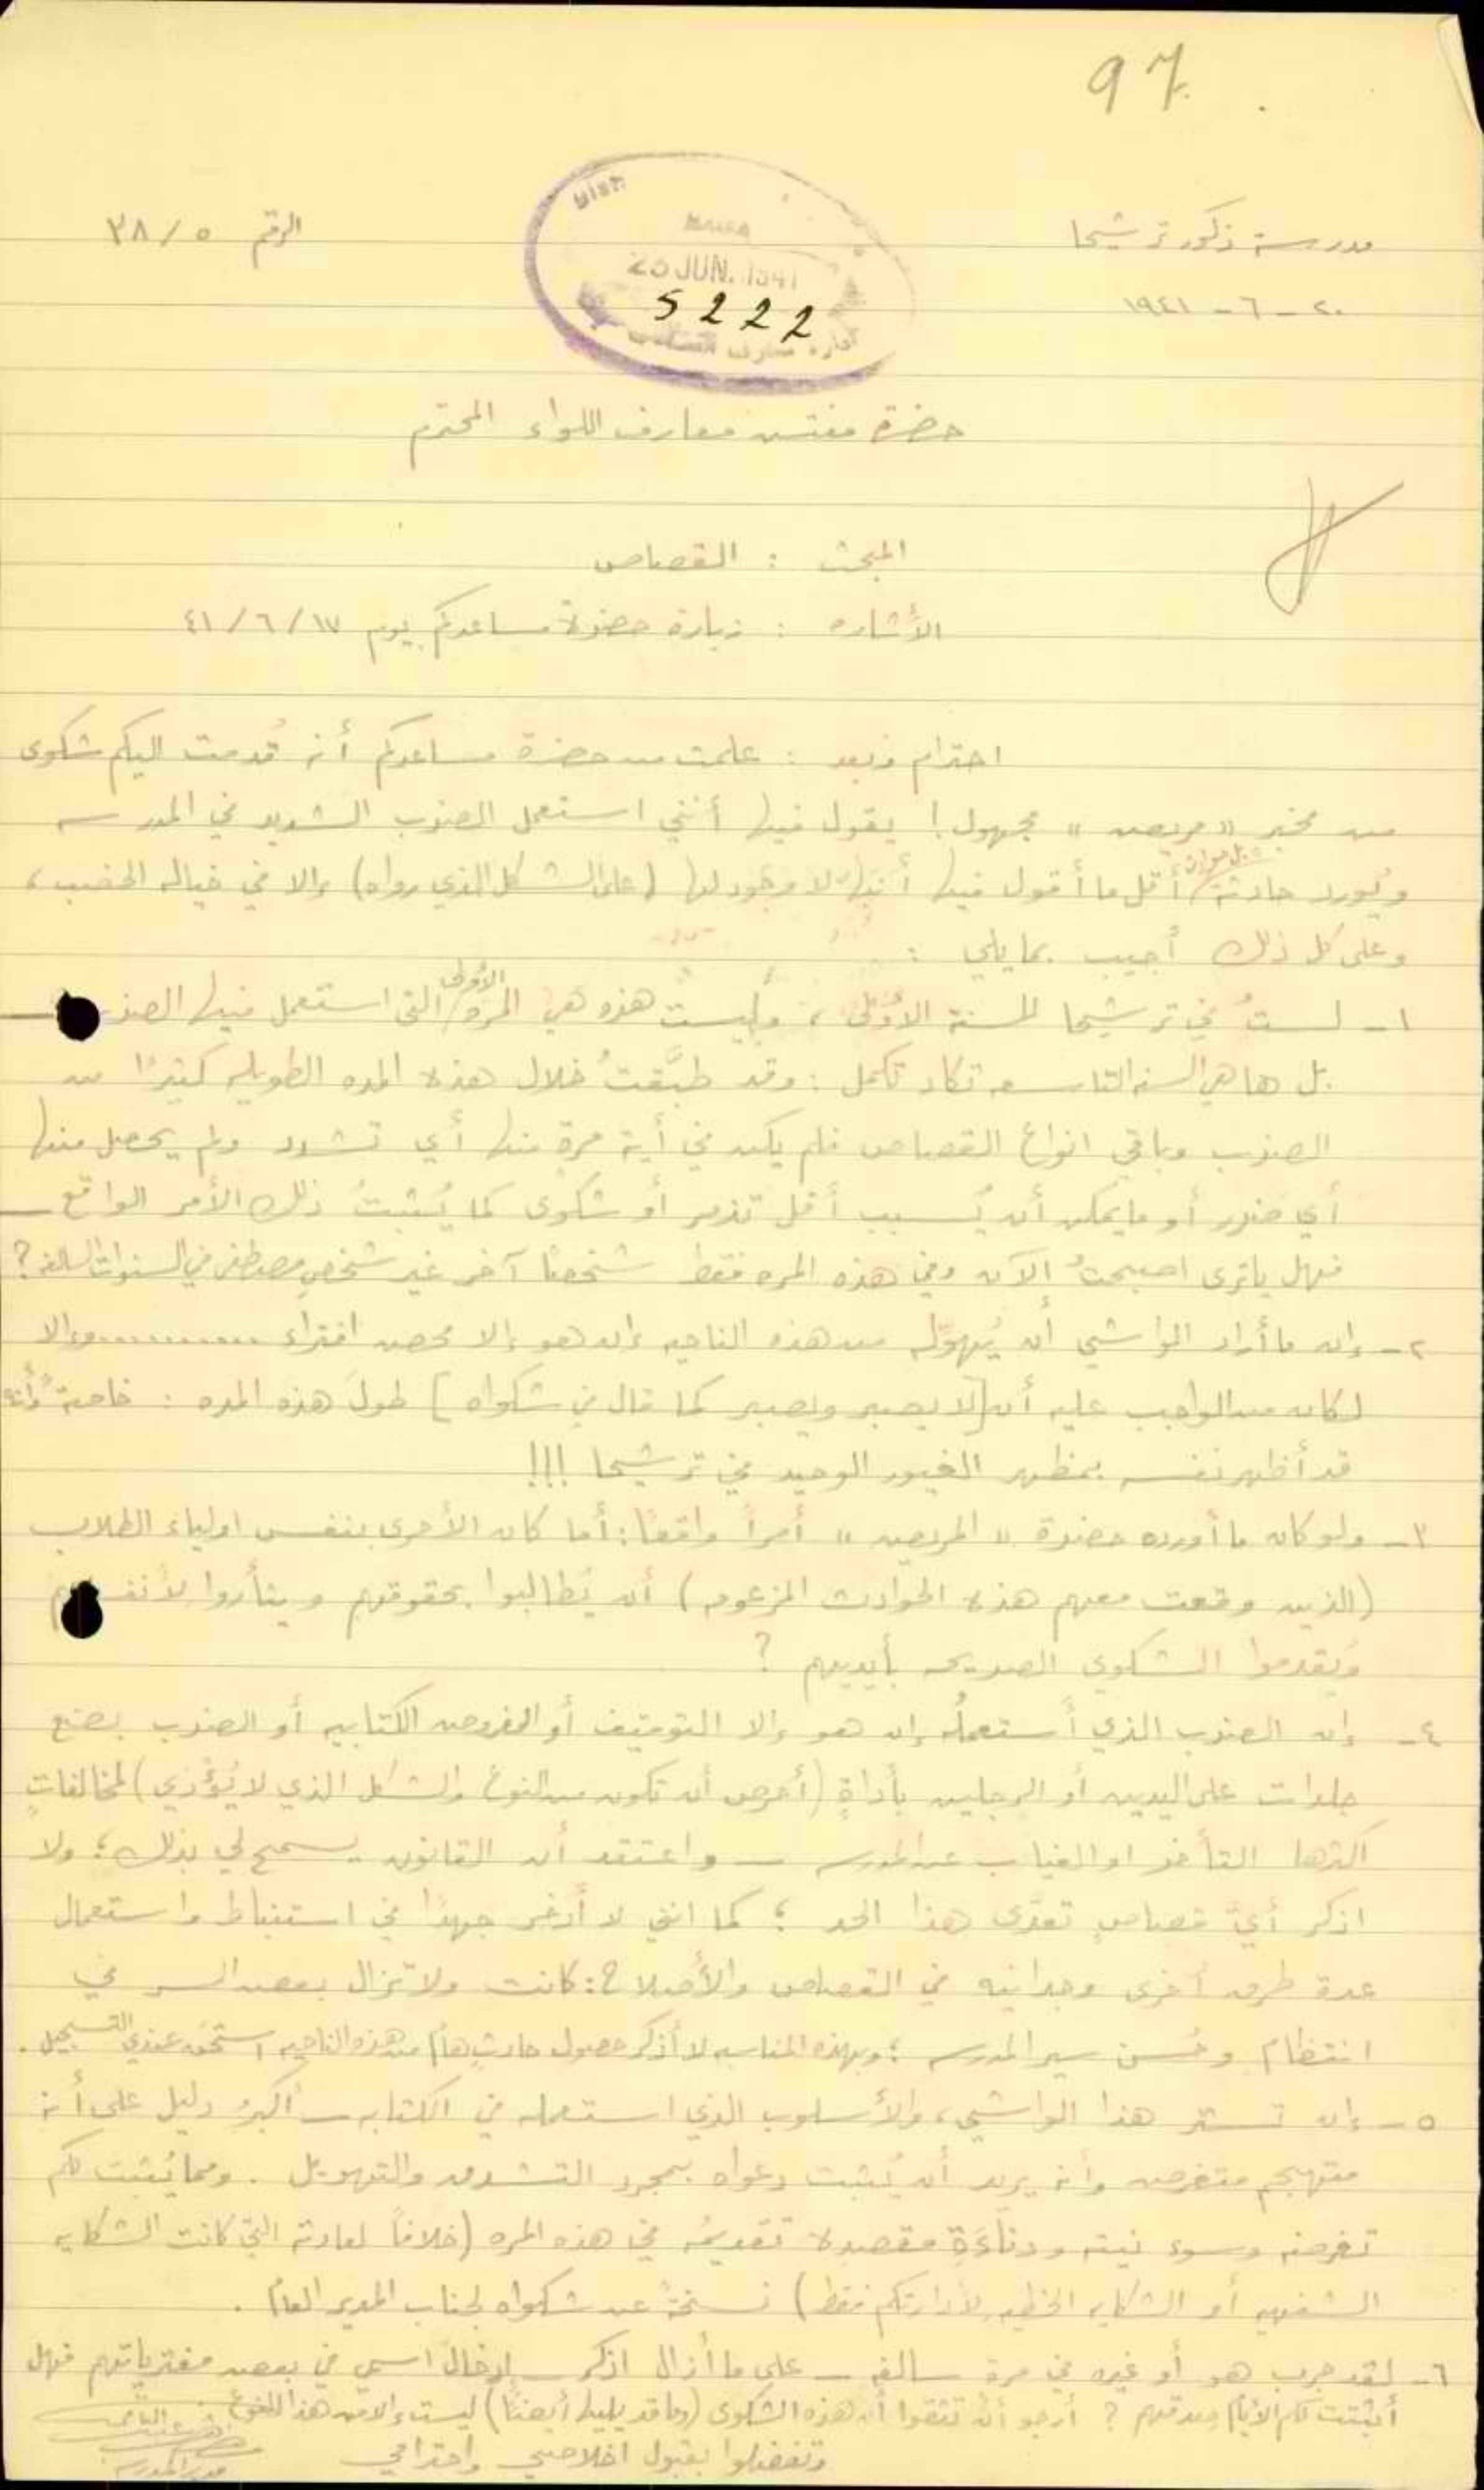 97
مدرسة ذكور ترشيحا
الرقم ٣٨/٥
HAIFA
JUN. 1941
5222
٢٠ - ٦ - ١٩٤١
حضرة مفتش معارف اللواء المحترم
المبحث : القصاص
الأشاره : زيارة حضرة مساعدكم يوم ١٧/٦/٤١
احترام وبعد : علمت من حضرة مساعدكم أنه قُدمت اليكم شكوى
من مخبر "مريض" مجهول! يقول فيها أنني استعمل الضرب الشديد في المدرسه
ويُورد حادثة بل حوادث أقل ما أقول فيها أنها لا وجود لها (على الشكل الذي رواه) إلا في خياله الخصب،
وعلى كل ذلك أجيب بما يلي :
١- لستُ في ترشيحا للسنة الأولى، وليست هذه هي المره الأولى التي استعمل فيها الضرب
بل ها هي السنه التاسعه تكاد تكمل : وقد طبَّقتُ خلال هذه المده الطويله كثيرًا من
الضرب وباقي انواع القصاص فلم يكن في أية مرة منها أي تشدد ولم يحصل منها
أي ضرر أو ما يمكن أن يُسبب أقل تذمر أو شكوى كما يُثبتُ ذلك الأمر الواقع
فهل يا ترى اصبحتُ الآن وفي هذه المره فقط شخصًا آخر غير شخصِ مصطفى في السنوات السالفه؟
٢- إن ما أراد الواشي أن يُهوّله من هذه الناحيه إن هو إلا محض افتراء ............ وإلا
لكان من الواجب عليه أن [لا يصبر ويصبر كما قال في شكواه] طولَ هذه المده : خاصةً وأنه
قد أظهر نفسه بمظهر الغيور الوحيد في ترشيحا !!!
٣- ولو كان ما أورده حضرة "المريض" أمراً واقعًا : أما كان الأحرى بنفس اولياء الطلاب
(الذين وقعت معهم هذه الحوادث المزعومه) أن يُطالبوا بحقوقهم ويثأروا لأنفسهم
ويُقدموا الشكوى الصريحه بأيديهم ؟
٤- إن الضرب الذي أستعملُه إن هو إلا التوقيف أو الفروض الكتابيه أو الضرب بضع
جلدات على اليدين أو الرجلين بأداةٍ (أحرص أن تكون من النوع والشكل الذي لا يُؤذي) لمخالفاتٍ
اكثرها التأخر او الغياب عن المدرسه — واعتقد أن القانون يسمح لي بذلك ؛ ولا
اذكر أيَّ قصاصٍ تعدَّى هذا الحد ؛ كما انني لا أدخر جهدًا في استنباط واستعمال
عدة طرق أخرى وجدانيه في القصاص والأصلاح : كانت ولا تزال بعض السر في
انتظام وحُسن سير المدرسه ؛ وبهذه المناسبه لا أذكر حصول حادثٍ هام من هذه الناحيه استحق عندي التسجيل.
٥- إن تستر هذا الواشي، والأسلوب الذي استعمله في الكتابه — أكبرُ دليل على أنه
متهجم متغرض وأنه يريد أن يُثبت دعواه بمجرد التشدق والتهويل . ومما يُثبت لكم
تغرضه وسوء نيته ودناءَة مقصده تقديمُه في هذه المره (خلافاً لعادته التي كانت الشكايه
الشفهيه أو الشكايه الخطيه لأدارتكم فقط) نسخةً عن شكواه لجناب المدير العام .
٦- لقد جرب هو أو غيره في مرة سالفه — على ما أزال اذكر — إدخال اسمي في بعض مفترياتهم فهل
أثبتت لكم الأيام صدقهم ؟ أرجو أن تثقوا أن هذه الشكوى (وما قد يليها أيضًا) ليست إلا من هذا النوع
وتفضلوا بقبول اخلاصي واحترامي
مدير المدرسه